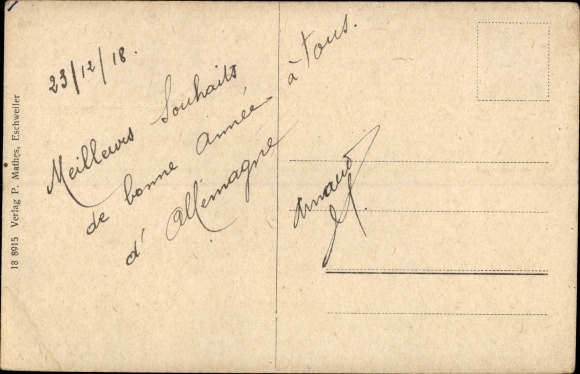 23/12/18.
Meilleurs Souhaits
de bonne Année à tous.
d'Allemagne
Arnaud
18 8915 Verlag P. Mathes, Eschweiler